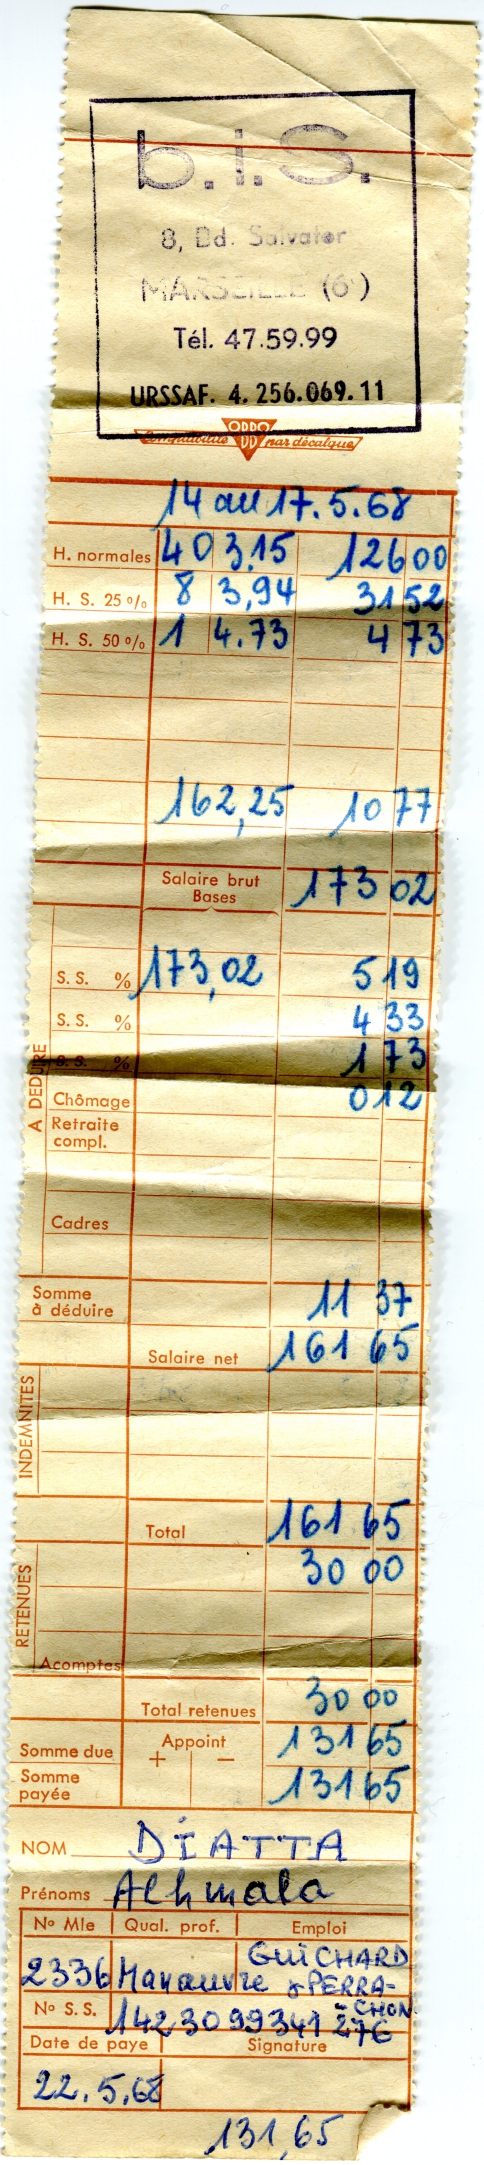 b.i.s.
8, Bd. Salvator
MARSEILLE (6e)
Tél. 47.59.99
URSSAF. 4. 256.069.11
OBBO
Comptabilité BD par décalque
14 au 17.5.68
H. normales 40 3,15 126 00
H. S. 25 % 8 3,94 31 52
H. S. 50 % 1 4.73 4 73
162,25 10 77
Salaire brut 173 02
Bases
A DEDUIRE
S. S. % 173,02 5 19
S. S. % 4 33
S. S. % 1 73
Chômage 0 12
Retraite compl.
Cadres
Somme à déduire 11 37
Salaire net 161 65
INDEMNITES
Total 161 65
RETENUES
30 00
Acomptes
Total retenues 30 00
Somme due Appoint 131 65
+ -
Somme payée 131 65
NOM DIATTA
Prénoms
No Mle Qual. prof. Emploi
GUICHARD
2336 Manœuvre PERRA-
CHON
No S. S. 1423099341 27E
Date de paye Signature
22.5.68
131,65